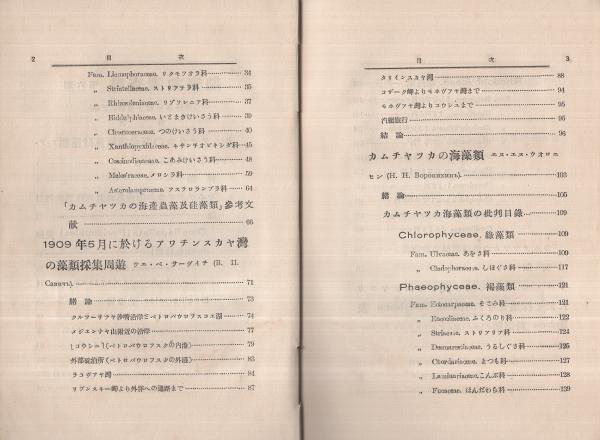 2 目次
Fam. Licmophoraceae. リクモフオラ科 34
„ Striatellaceae. ストリアテラ科 35
„ Rhizosoleniaceae. リゾソレニア科 37
„ Biddulphiaceae. いとまきけいさう科 39
„ Chaetoceraceae. つのけいさう科 40
„ Xanthiopyxidaceae. キサンチオピキシダ科 45
„ Coscinodiscaceae. こあみけいさう科 48
„ Melosiraceae. メロシラ科 59
„ Asterolampraceae. アステロランプラ科 64
「カムチヤツカの海產蟲藻及硅藻類」參考文
献 66
1909年5月に於けるアワチンスカヤ灣
の藻類採集周遊 ウエ・ペ・サーヴイチ (В. П.
Савичъ) 71
緒論 73
74
メジエンナヤ山附近の沿岸 77
「コウシュ」(ペトロパウロフスクの內港) 79
外部碇泊所(ペトロパウロフスクの外港) 83
ラコヴアヤ灣 84
岬より外洋への通路まで 87
目次 3
タリインスカヤ灣 88
岬よりモホヴアヤ灣まで 94
モホヴアヤ灣よりコウシュまで 95
汽艇旅行 95
結論 96
カムチヤツカの海藻類 エヌ・エヌ・ウオロニ
ヒン (Н. Н. Воронихинъ) 103
緒論 105
カムチヤツカ海藻類の批判目錄 109
Chlorophyceae. 綠藻類 109
Fam. Ulvaceae. あをさ科 109
„ Cladophoraceae. しほぐさ科 117
Phaeophyceae. 褐藻類 121
Fam. Ectocarpaceae. そさみ科 121
„ Encoeliaceae. ふくろのり科 122
„ Striariaceae. ストリアリア科 124
„ Desmarestiaceae. うるしぐさ科 125
„ Chordariaceae. まつも科 127
„ Laminariaceae. こんぶ科 128
„ Fucaceae. ほんだわら科 139